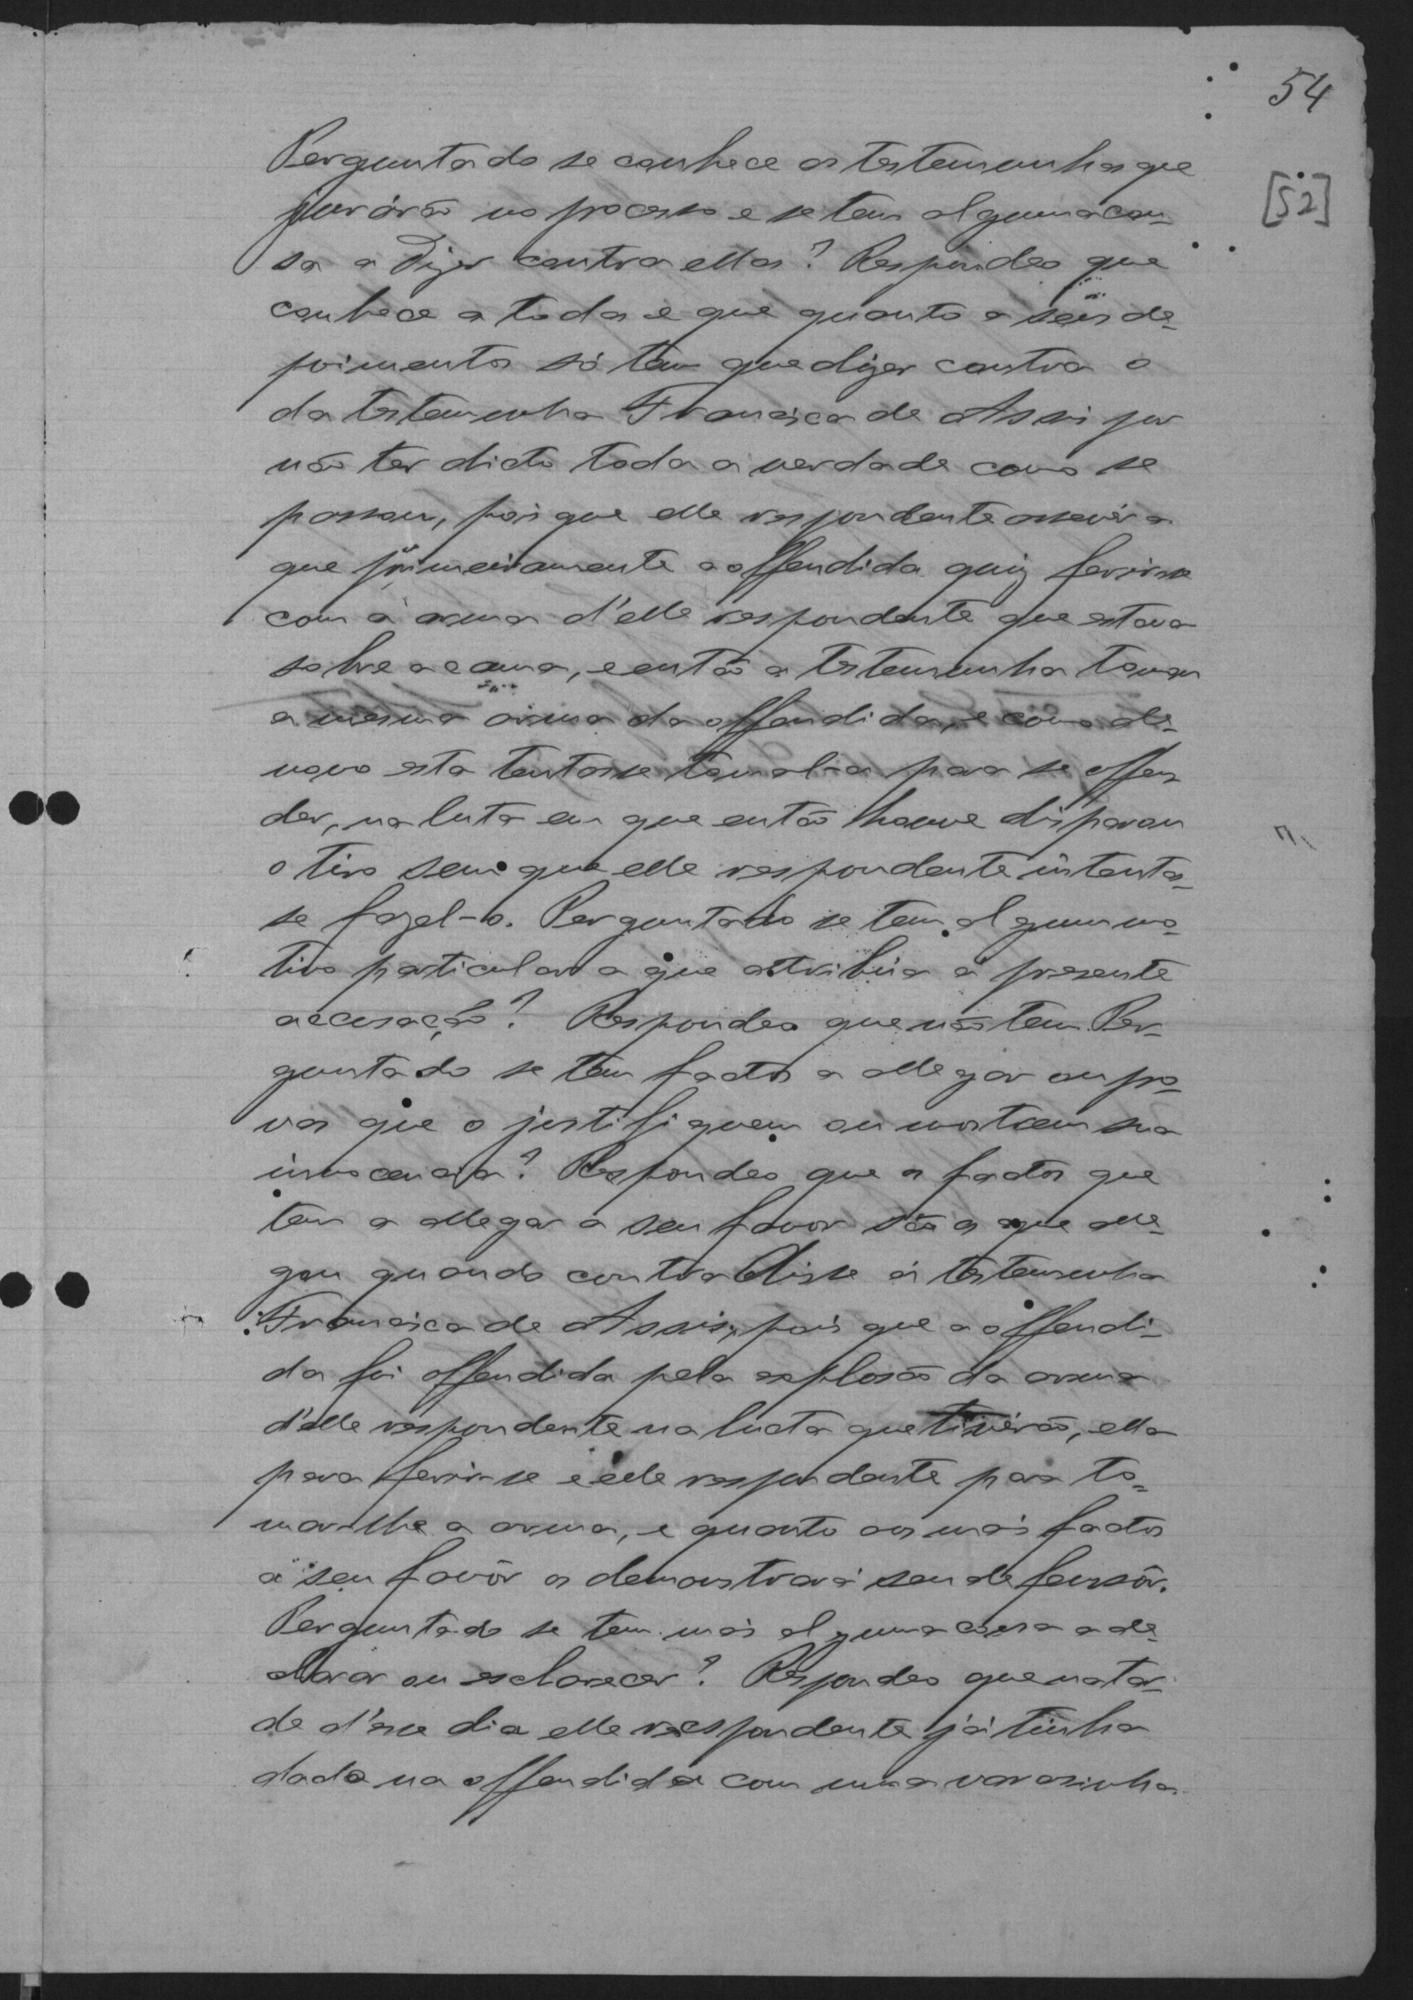 54
[52]
Perguntado se conhece as testemunhas que
jurárão no processo e se tem alguma cou-
sa a dizer contra ellas? Respondeo que
conhece a todas e que quanto a seus de-
poimentos só tem que dizer contra o
da testemunha Francisca de Assis por
não ter dicto toda a verdade como se
passou, pois que elle respondente assevéra
que primeiramente a offendida quiz ferir-se
com a arma d'elle respondente que estava
sobre a cama, e então a testemunha tomou
a mesma arma da offendida, e como de
novo esta tentasse tomal-a para se offen
der, na luta em que então houve disparou
o tiro sem que elle respondente intentas-
se fazel-o. Perguntado se tem algum mo-
tivo particular a que attribúa a presente
accusação? Respondeo que não tem. Per-
guntado se tem factos a allegar ou pro-
vas que o justifiquem ou mostrem sua
innocencia? Respondeo que os factos que
tem a allegar a seu favor são os que alle-
gou quando contradisse á testemunha
Francisca de Assis, pois que a offendi-
da foi offendida pela explosão da arma
d'elle respondente na lucta que tivérão, ella
para ferir-se e elle respondente para to-
mar-lhe a arma, e quanto aos mais factos
a seu favôr os demonstrará seu defensôr.
Perguntado se tem mais alguma cousa a de-
clarar ou esclarecer? Respondeo que na tar-
de d'esse dia elle respondente já tinha
dado na offendida com uma varasinha